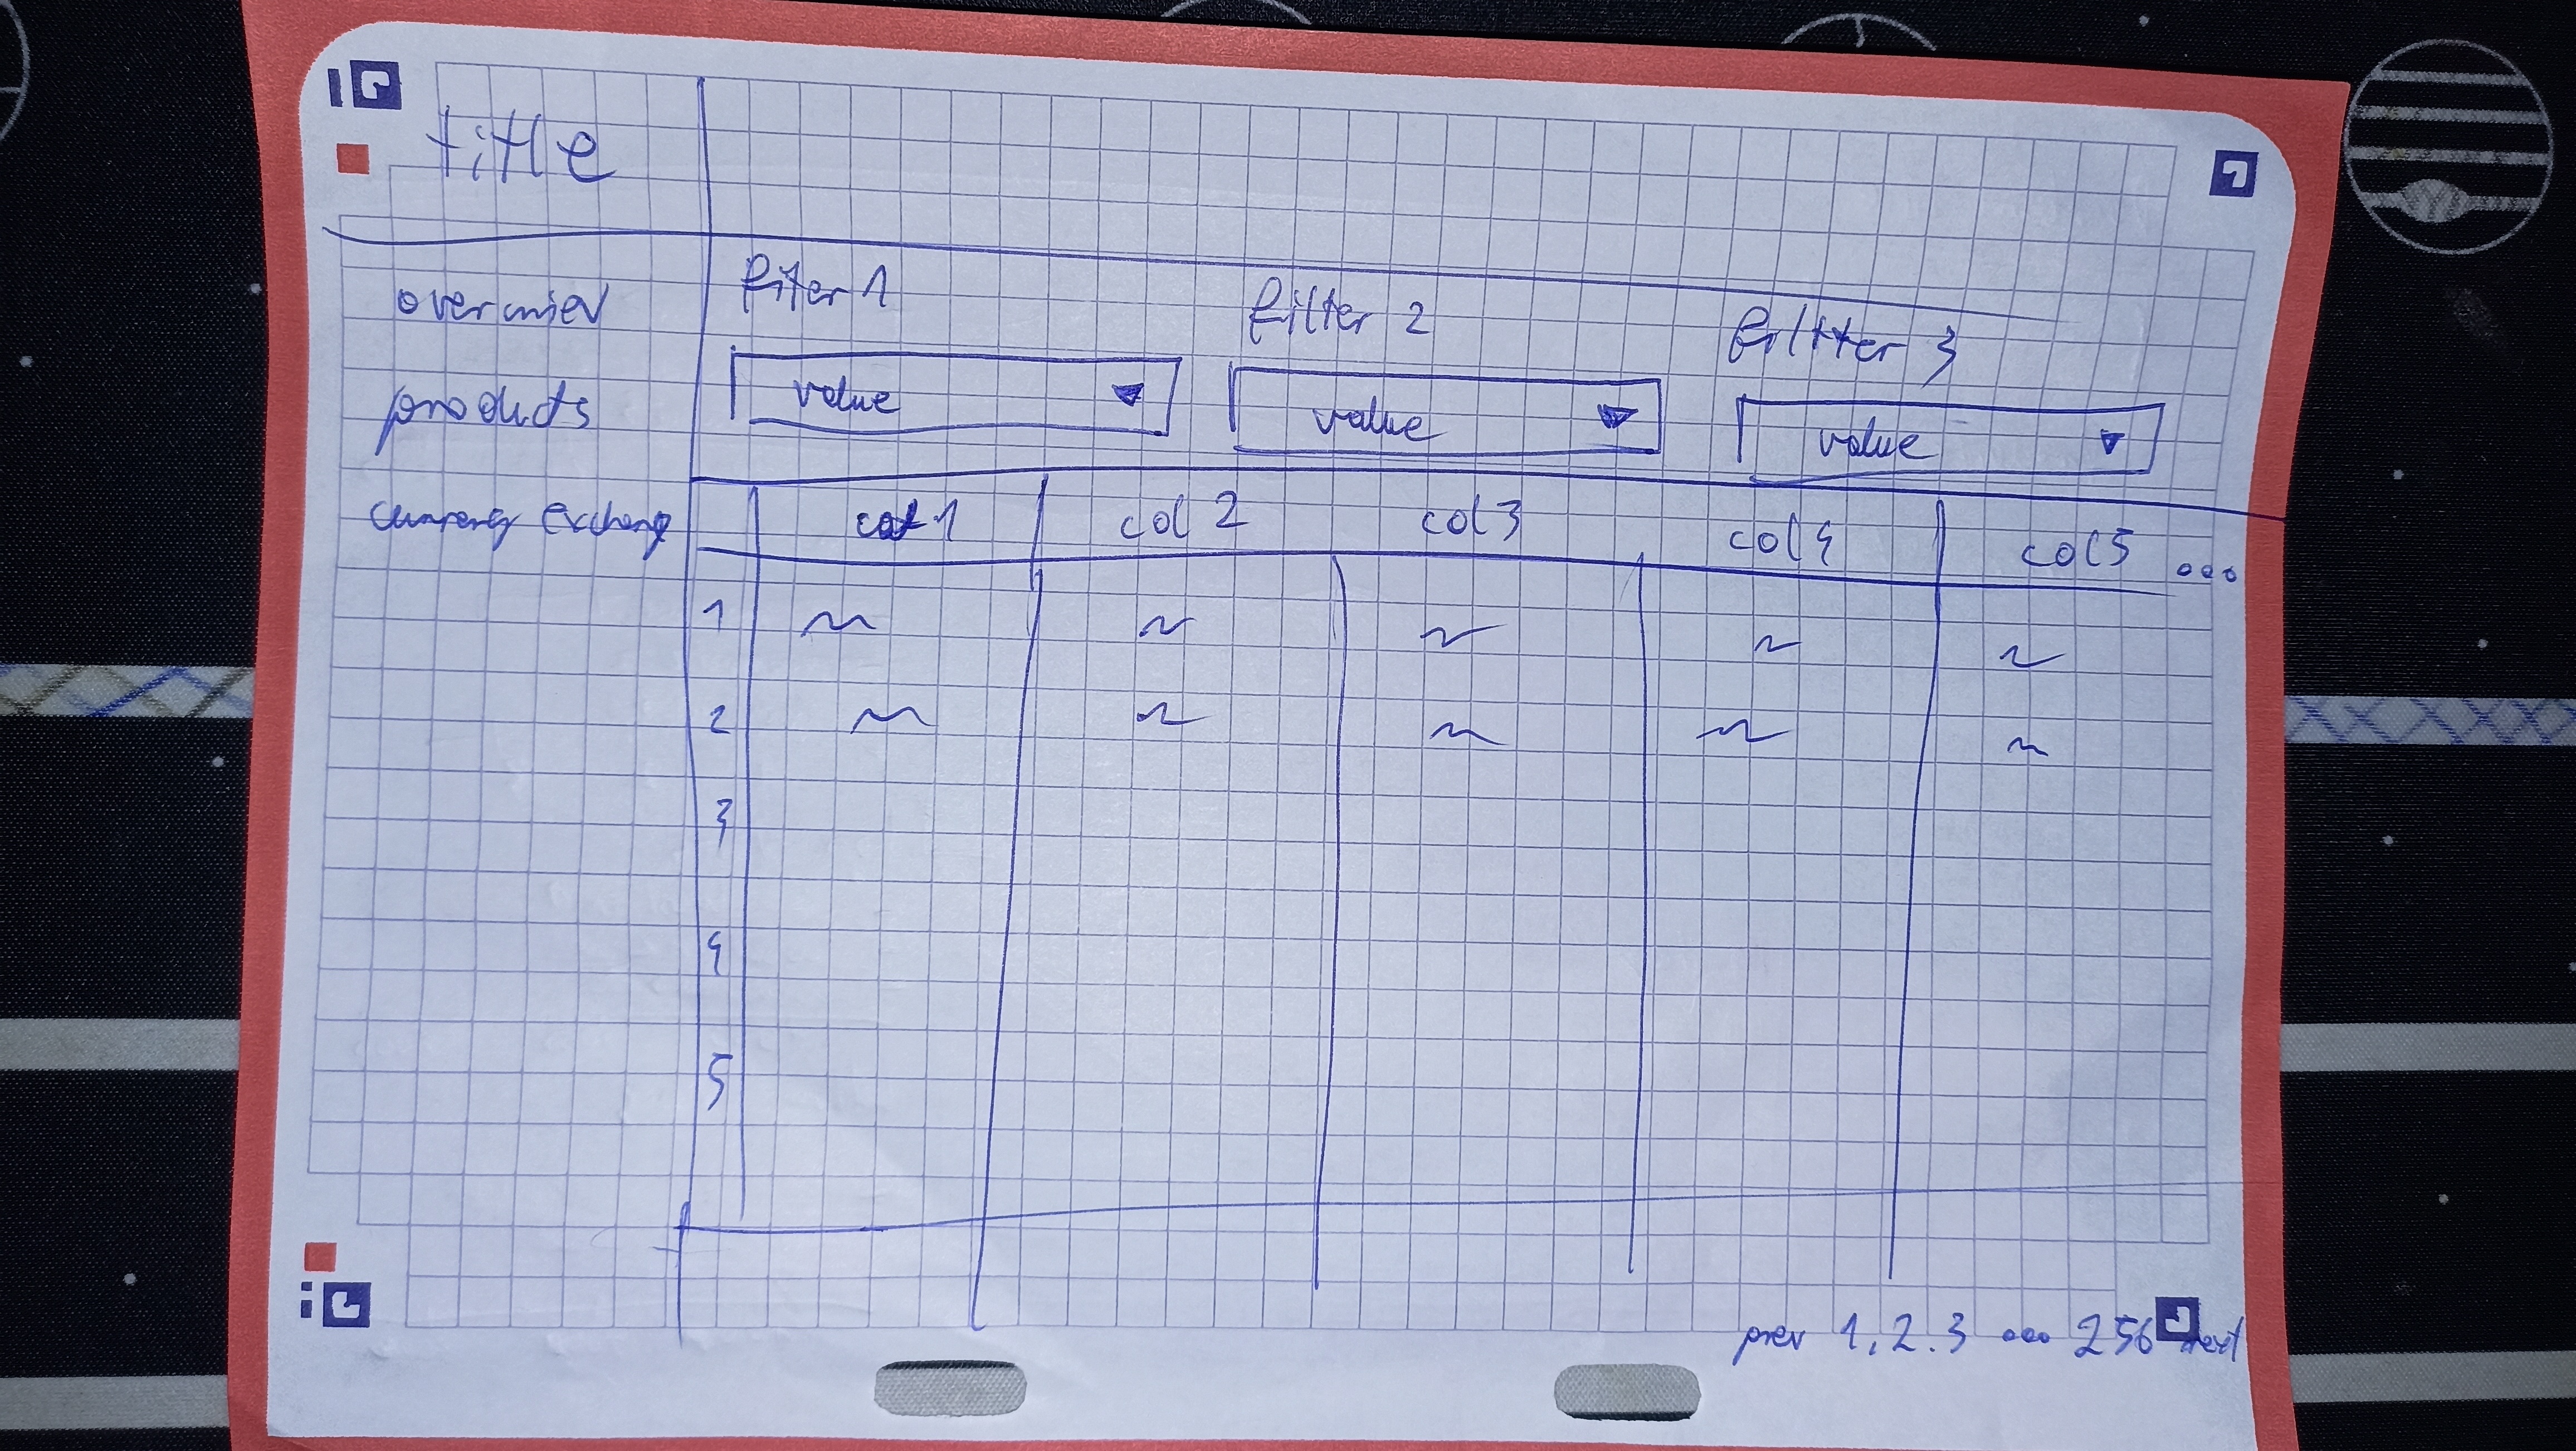 title
overwiev
products
currency exchang
fiter 1
filter 2
filtter 3
value
value
value
col 1
col 2
col 3
col 4
col 5 ...
1
2
3
4
5
prev 1, 2. 3 ... 256 next